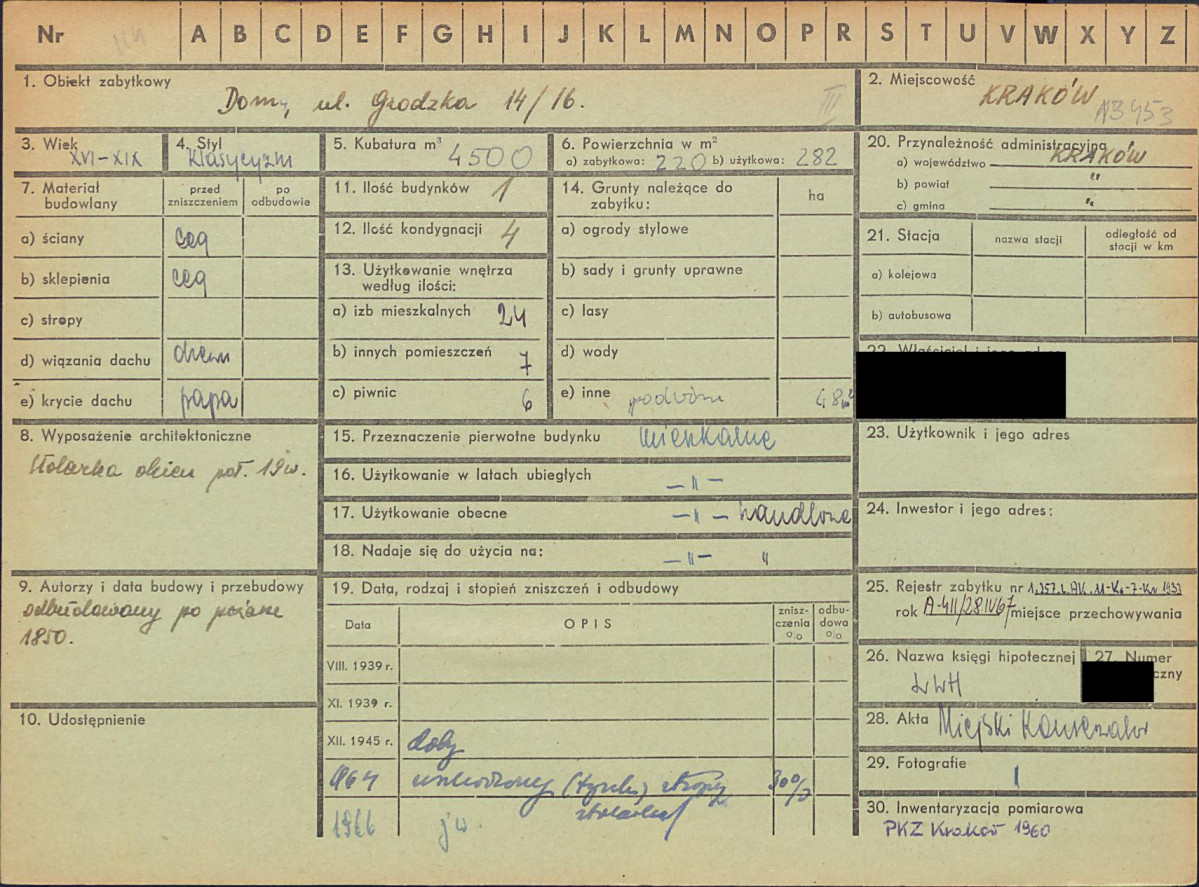 Nr A B C D E F G H I J K L M N O P R S T U V W X Y Z
1. Obiekt zabytkowy
Domy, ul. Grodzka 14/16.
III
2. Miejscowość
KRAKÓW
N3453
3. Wiek
XVI-XIX
4. Styl
Klasycyzm
5. Kubatura m³ 4500
6. Powierzchnia w m²
a) zabytkowa: 220 b) użytkowa: 282
7. Materiał budowlany
przed zniszczeniem
po odbudowie
a) ściany ceg
b) sklepienia ceg
c) stropy
d) wiązania dachu drewn
e) krycie dachu papa
8. Wyposażenie architektoniczne
Stolarka okien poł. 19 w.
9. Autorzy i data budowy i przebudowy
odbudowany po pożarze
1850.
10. Udostępnienie
11. Ilość budynków 1
12. Ilość kondygnacji 4
13. Użytkowanie wnętrza
według ilości:
a) izb mieszkalnych 24
b) innych pomieszczeń 7
c) piwnic 6
14. Grunty należące do
zabytku:
ha
a) ogrody stylowe
b) sady i grunty uprawne
c) lasy
d) wody
e) inne podwórze 48 m²
15. Przeznaczenie pierwotne budynku mieszkalne
16. Użytkowanie w latach ubiegłych — " —
17. Użytkowanie obecne — " — handlowe
18. Nadaje się do użycia na: — " — "
19. Data, rodzaj i stopień zniszczeń i odbudowy
Data
OPIS
znisz-
czenia
%
odbu-
dowa
%
VIII. 1939 r.
XI. 1939 r.
XII. 1945 r. doby
1964 uszkodzony (tynki, stropy 30%
stolarka)
1966 jw.
20. Przynależność administracyjna
a) województwo KRAKÓW
b) powiat "
c) gmina "
21. Stacja
nazwa stacji
odległość od
stacji w km
a) kolejowa
b) autobusowa
23. Użytkownik i jego adres
24. Inwestor i jego adres:
25. Rejestr zabytku nr
rok A-411/28IV67 miejsce przechowywania
26. Nazwa księgi hipotecznej
LWH
27. Numer
czny
28. Akta Miejski Konserwator
29. Fotografie 1
30. Inwentaryzacja pomiarowa
PKZ Kraków 1960